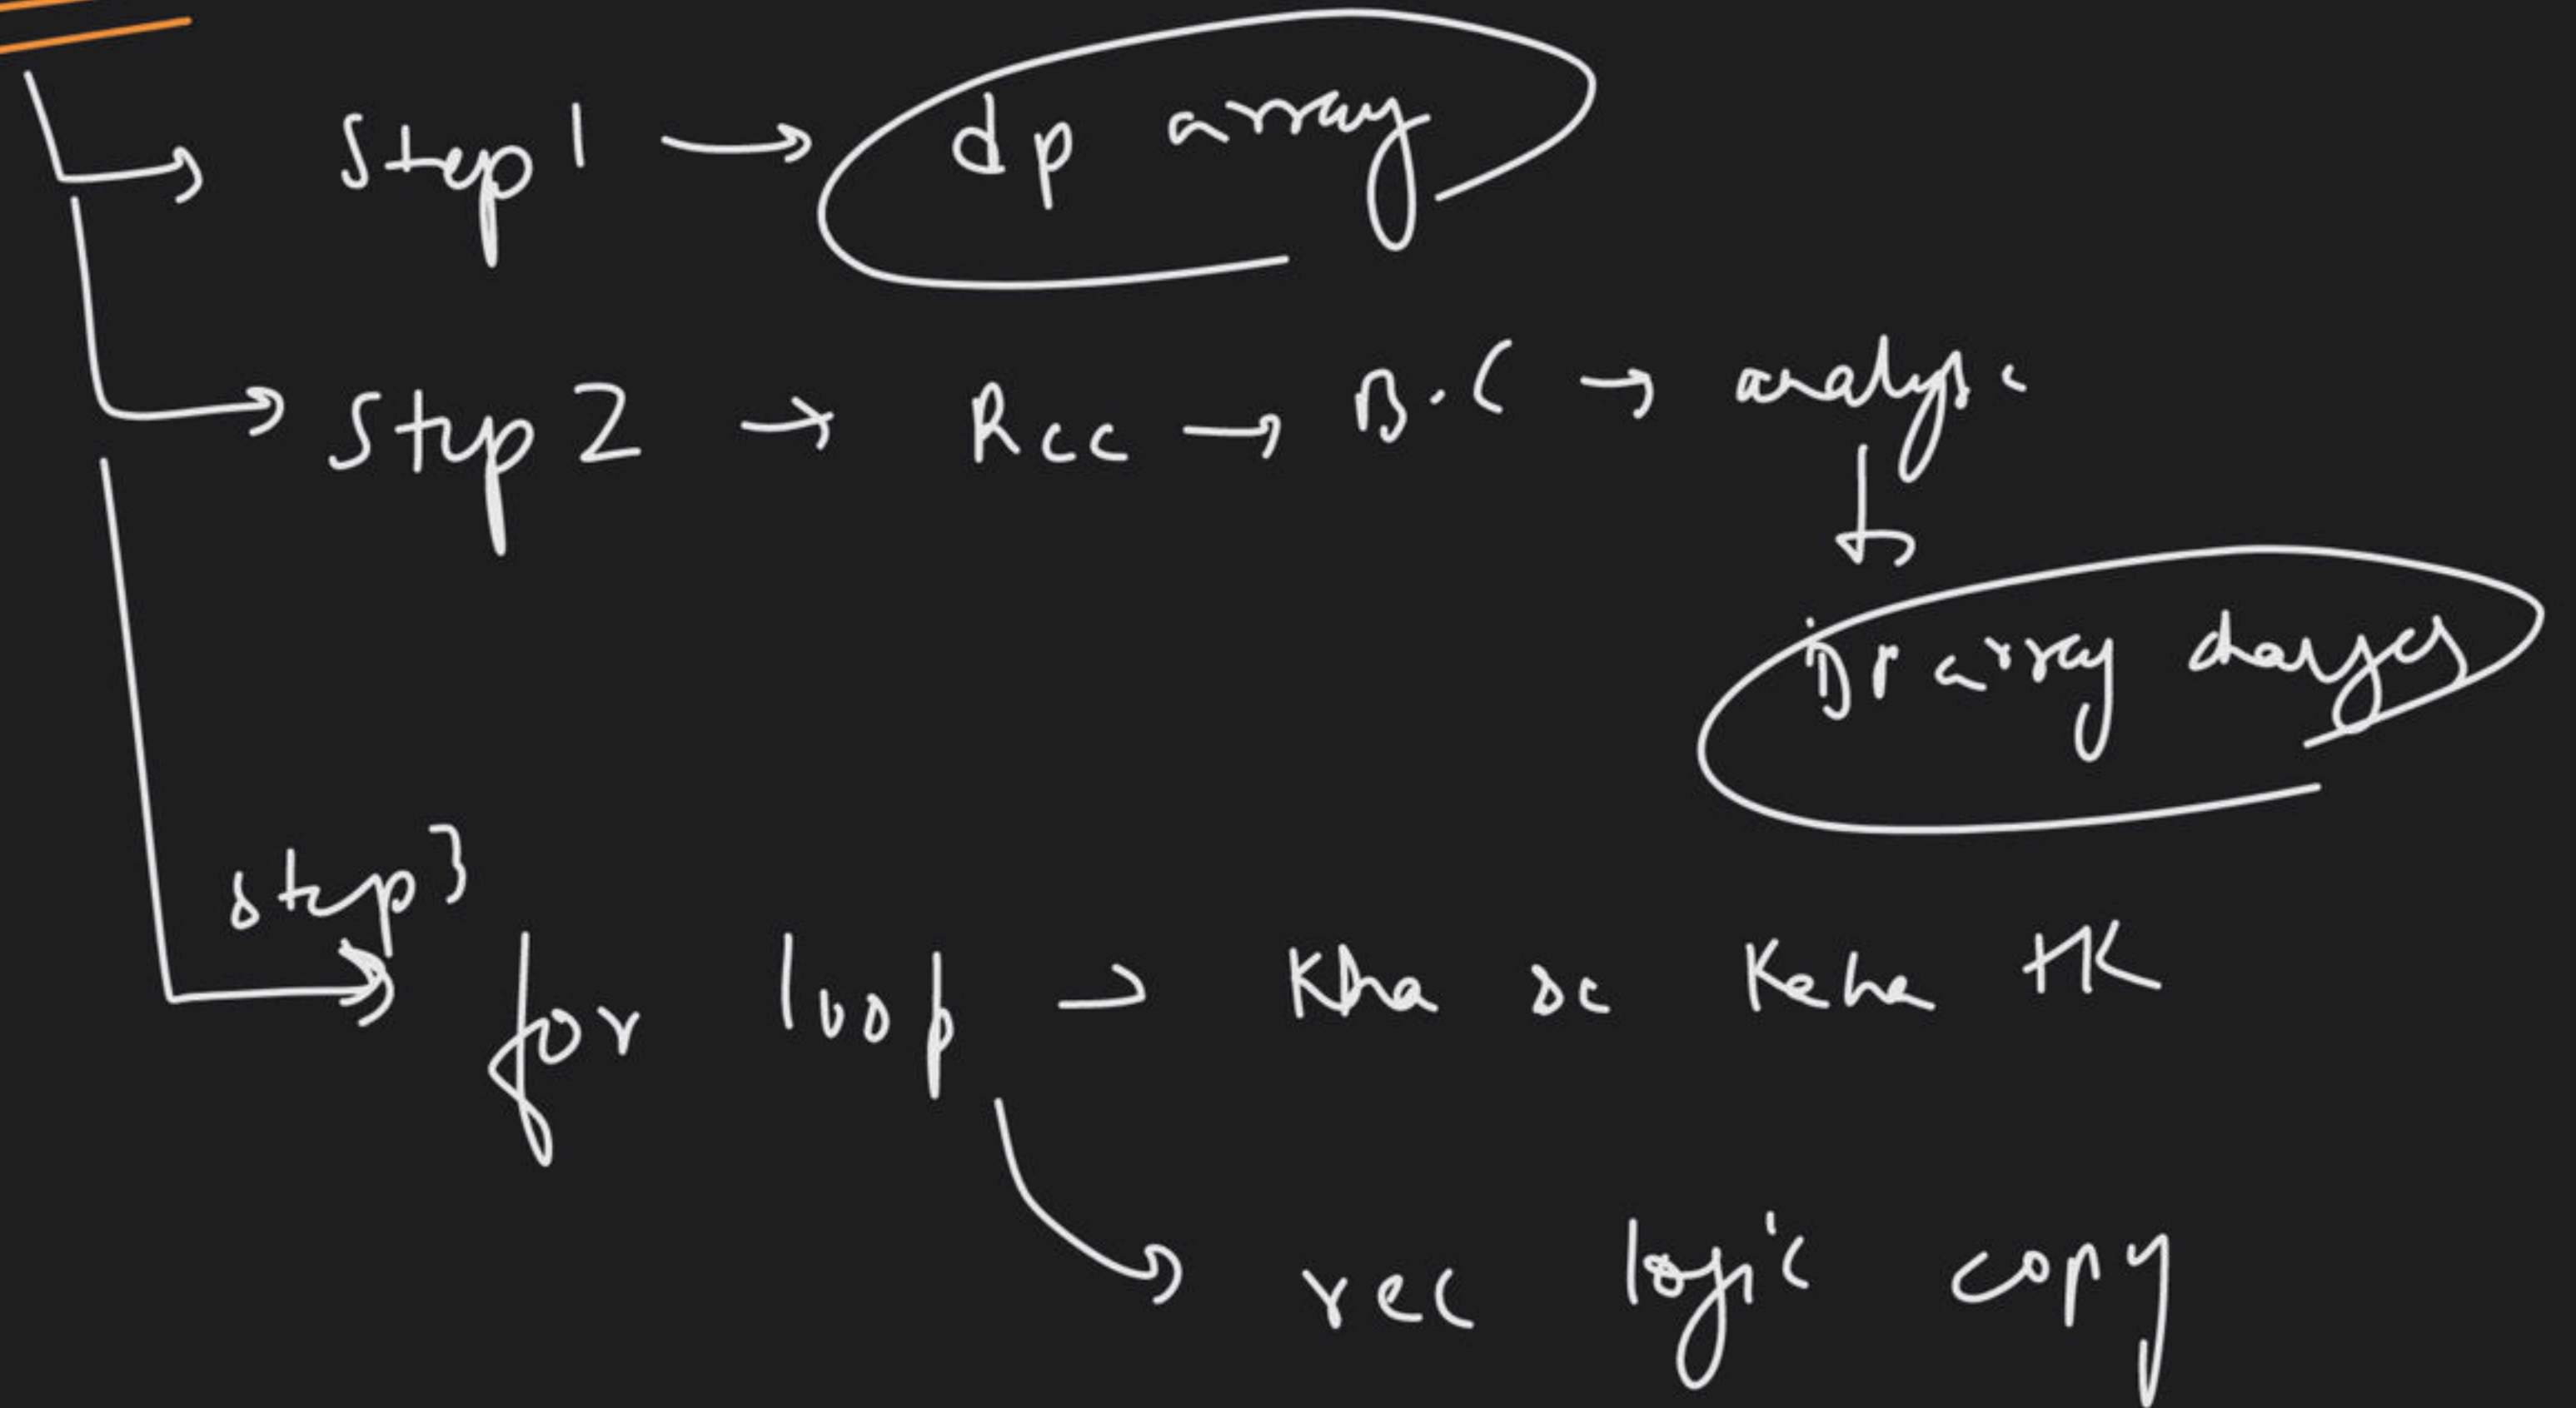 Step 1 → dp array
Step 2 → Rec → B.C → analyse
DP array changes
step 3
for loop → Kha se Kaha tk
rec logic copy